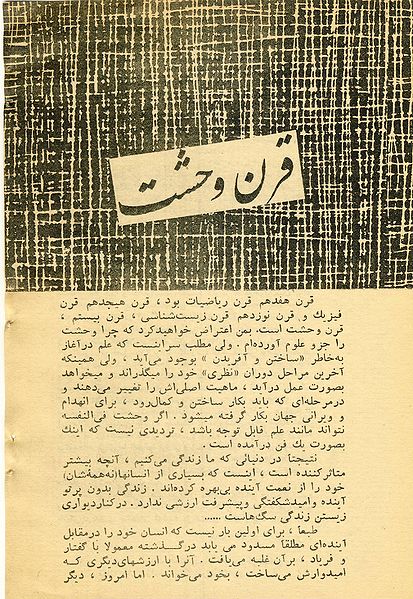 قرن وحشت
قرن هفدهم قرن ریاضیات بود ، قرن هیجدهم قرن
فیزیك و قرن نوزدهم قرن زیست‌شناسی ، قرن بیستم ،
قرن وحشت است. بمن اعتراض خواهیدکرد که چرا وحشت
را جزو علوم آورده‌ام . ولی مطلب سراینست که علم درآغاز
به‌خاطر «ساختن و آفریدن » بوجود می‌آید ، ولی همینکه
آخرین مراحل دوران «نظری» خود را میگذراند و میخواهد
بصورت عمل درآید ، ماهیت اصلی‌اش را تغییر می‌دهند و
درمرحله‌ای که باید بکار ساختن و کمال‌رود ، برای انهدام
و ویرانی جهان بکار گرفته میشود . اگر وحشت فی‌النفسه
نتواند مانند علم قابل توجه باشد ، تردیدی نیست که اینك
بصورت یك فن درآمده است .
نتیجتاً در دنیائی که ما زندگی می‌کنیم ، آنچه بیشتر
متاثرکننده است ، اینست که بسیاری از انسانها(نه‌همه‌شان)
خود را از نعمت آینده بی‌بهره کرده‌اند . زندگی بدون پرتو
آینده وامیدشکفتگی وپیشرفت ارزشی ندارد . درکناردیواری
زیستن زندگی سگ‌هاست .....
طبعاً ، برای اولین بار نیست که انسان خود را درمقابل
آینده‌ای مطلقاً مسدود می یابد درگذشته معمولا با گفتار
و فریاد ، برآن غلبه می‌یافت . آنرا با ارزشهای‌دیگری که
امیدوارش می‌ساخت ، بخود می‌خواند . اما امروز ، دیگر